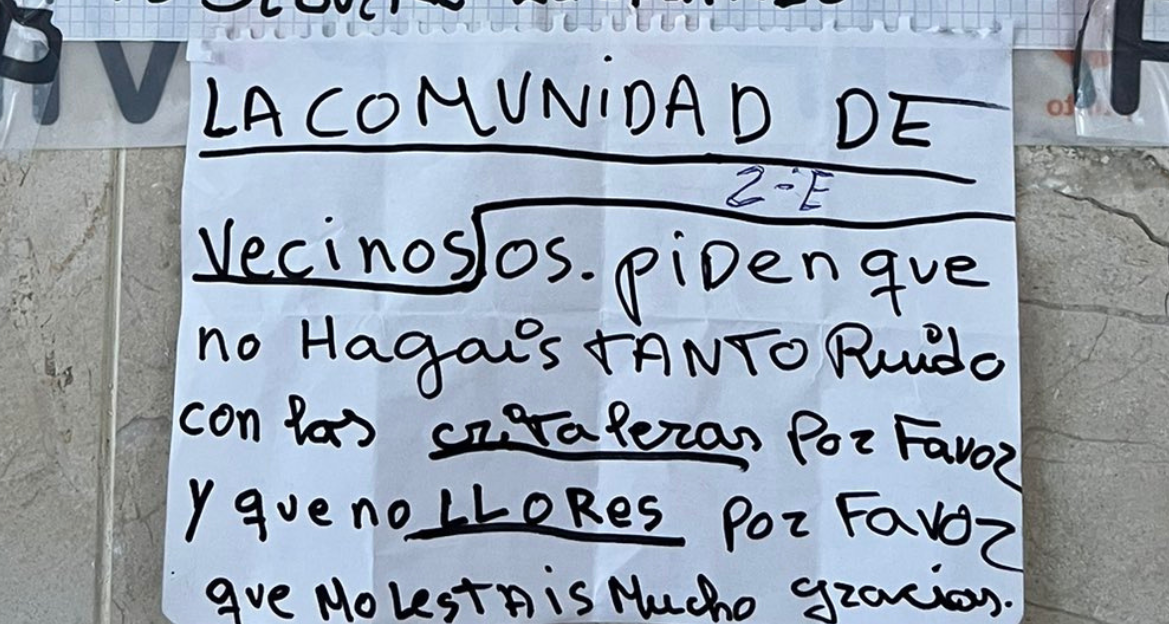 LA COMUNIDAD DE
2-E
Vecinos os. piden que
no Hagais TANTO Ruido
con las critaleras Por Favor
Y que no LLORES Por Favor
que MoLesTAis Mucho gracias.